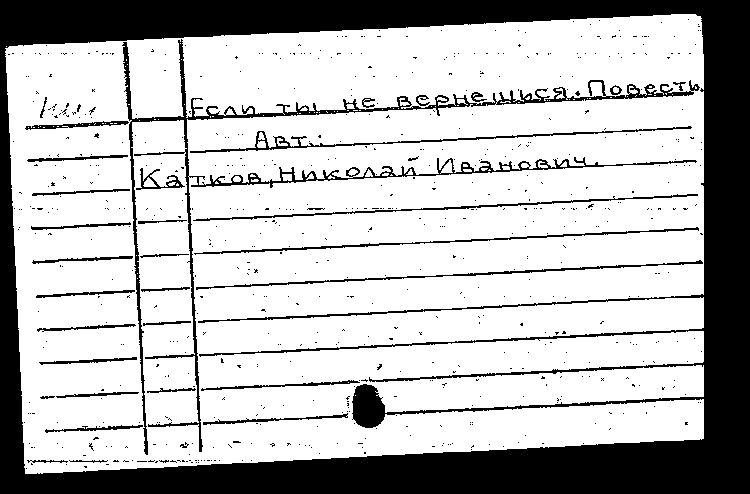 Если ты не вернешься. Повесть.
Авт.:
Катков, Николай Иванович.